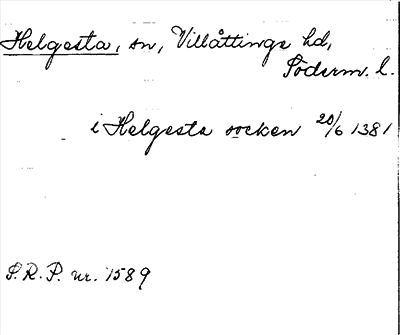 Helgesta, sn, Villåttinge hd,
Söderm. l.
i Helgesta socken 20/6 1381
S.R.P. nr. 1589